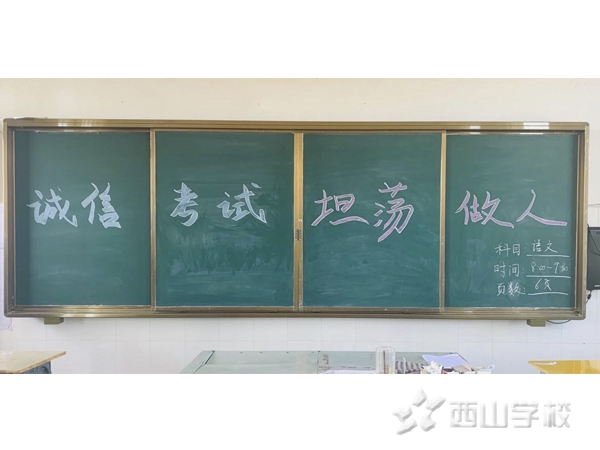 诚信 考试 坦荡 做人
科目: 语文
时间:
页数: 6页
西山学校